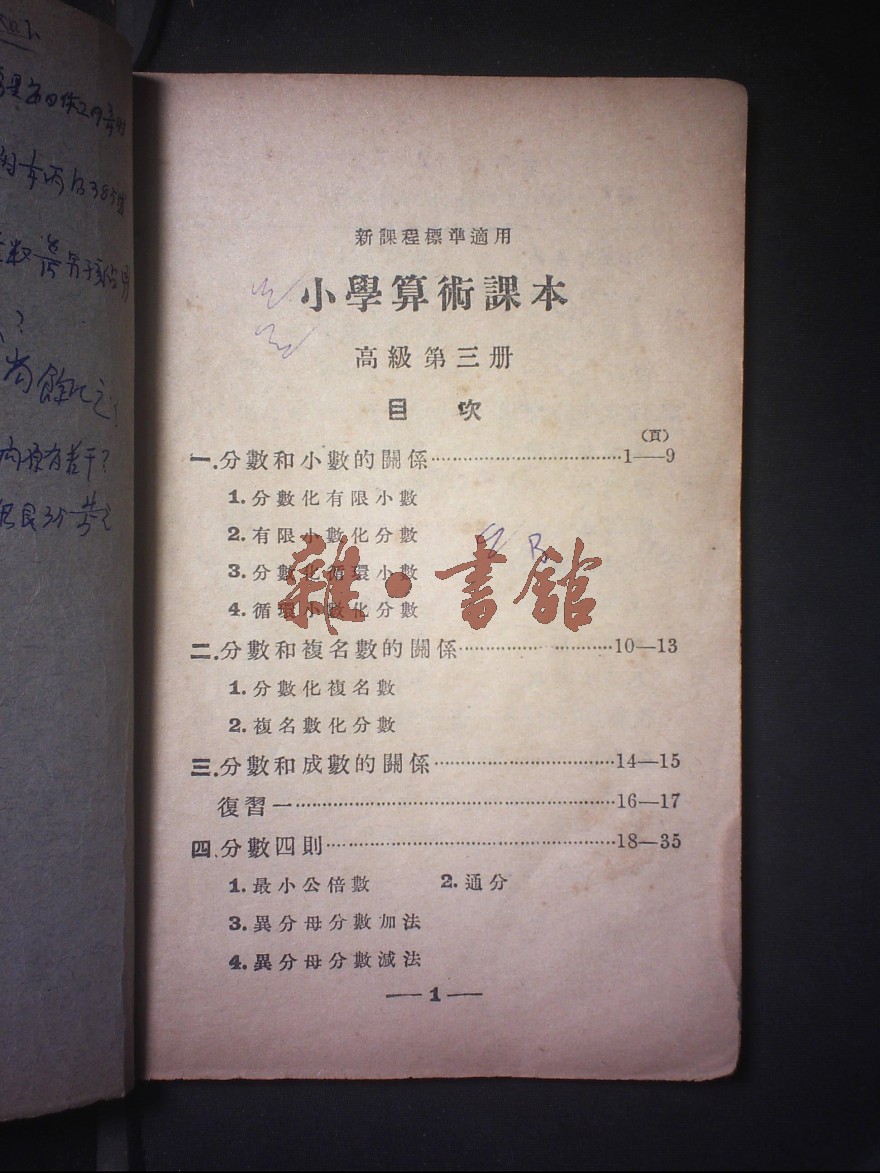 新課程標準適用
小學算術課本
高級第三册
目 次
（頁）
一.分數和小數的關係……………………………1—9
1.分數化有限小數
2.有限小數化分數
3.分數化循環小數
4.循環小數化分數
雜·書館
二.分數和複名數的關係………………………10—13
1.分數化複名數
2.複名數化分數
三.分數和成數的關係…………………………14—15
復習一………………………………………………16—17
四.分數四則…………………………………………18—35
1.最小公倍數 2.通分
3.異分母分數加法
4.異分母分數減法
—1—